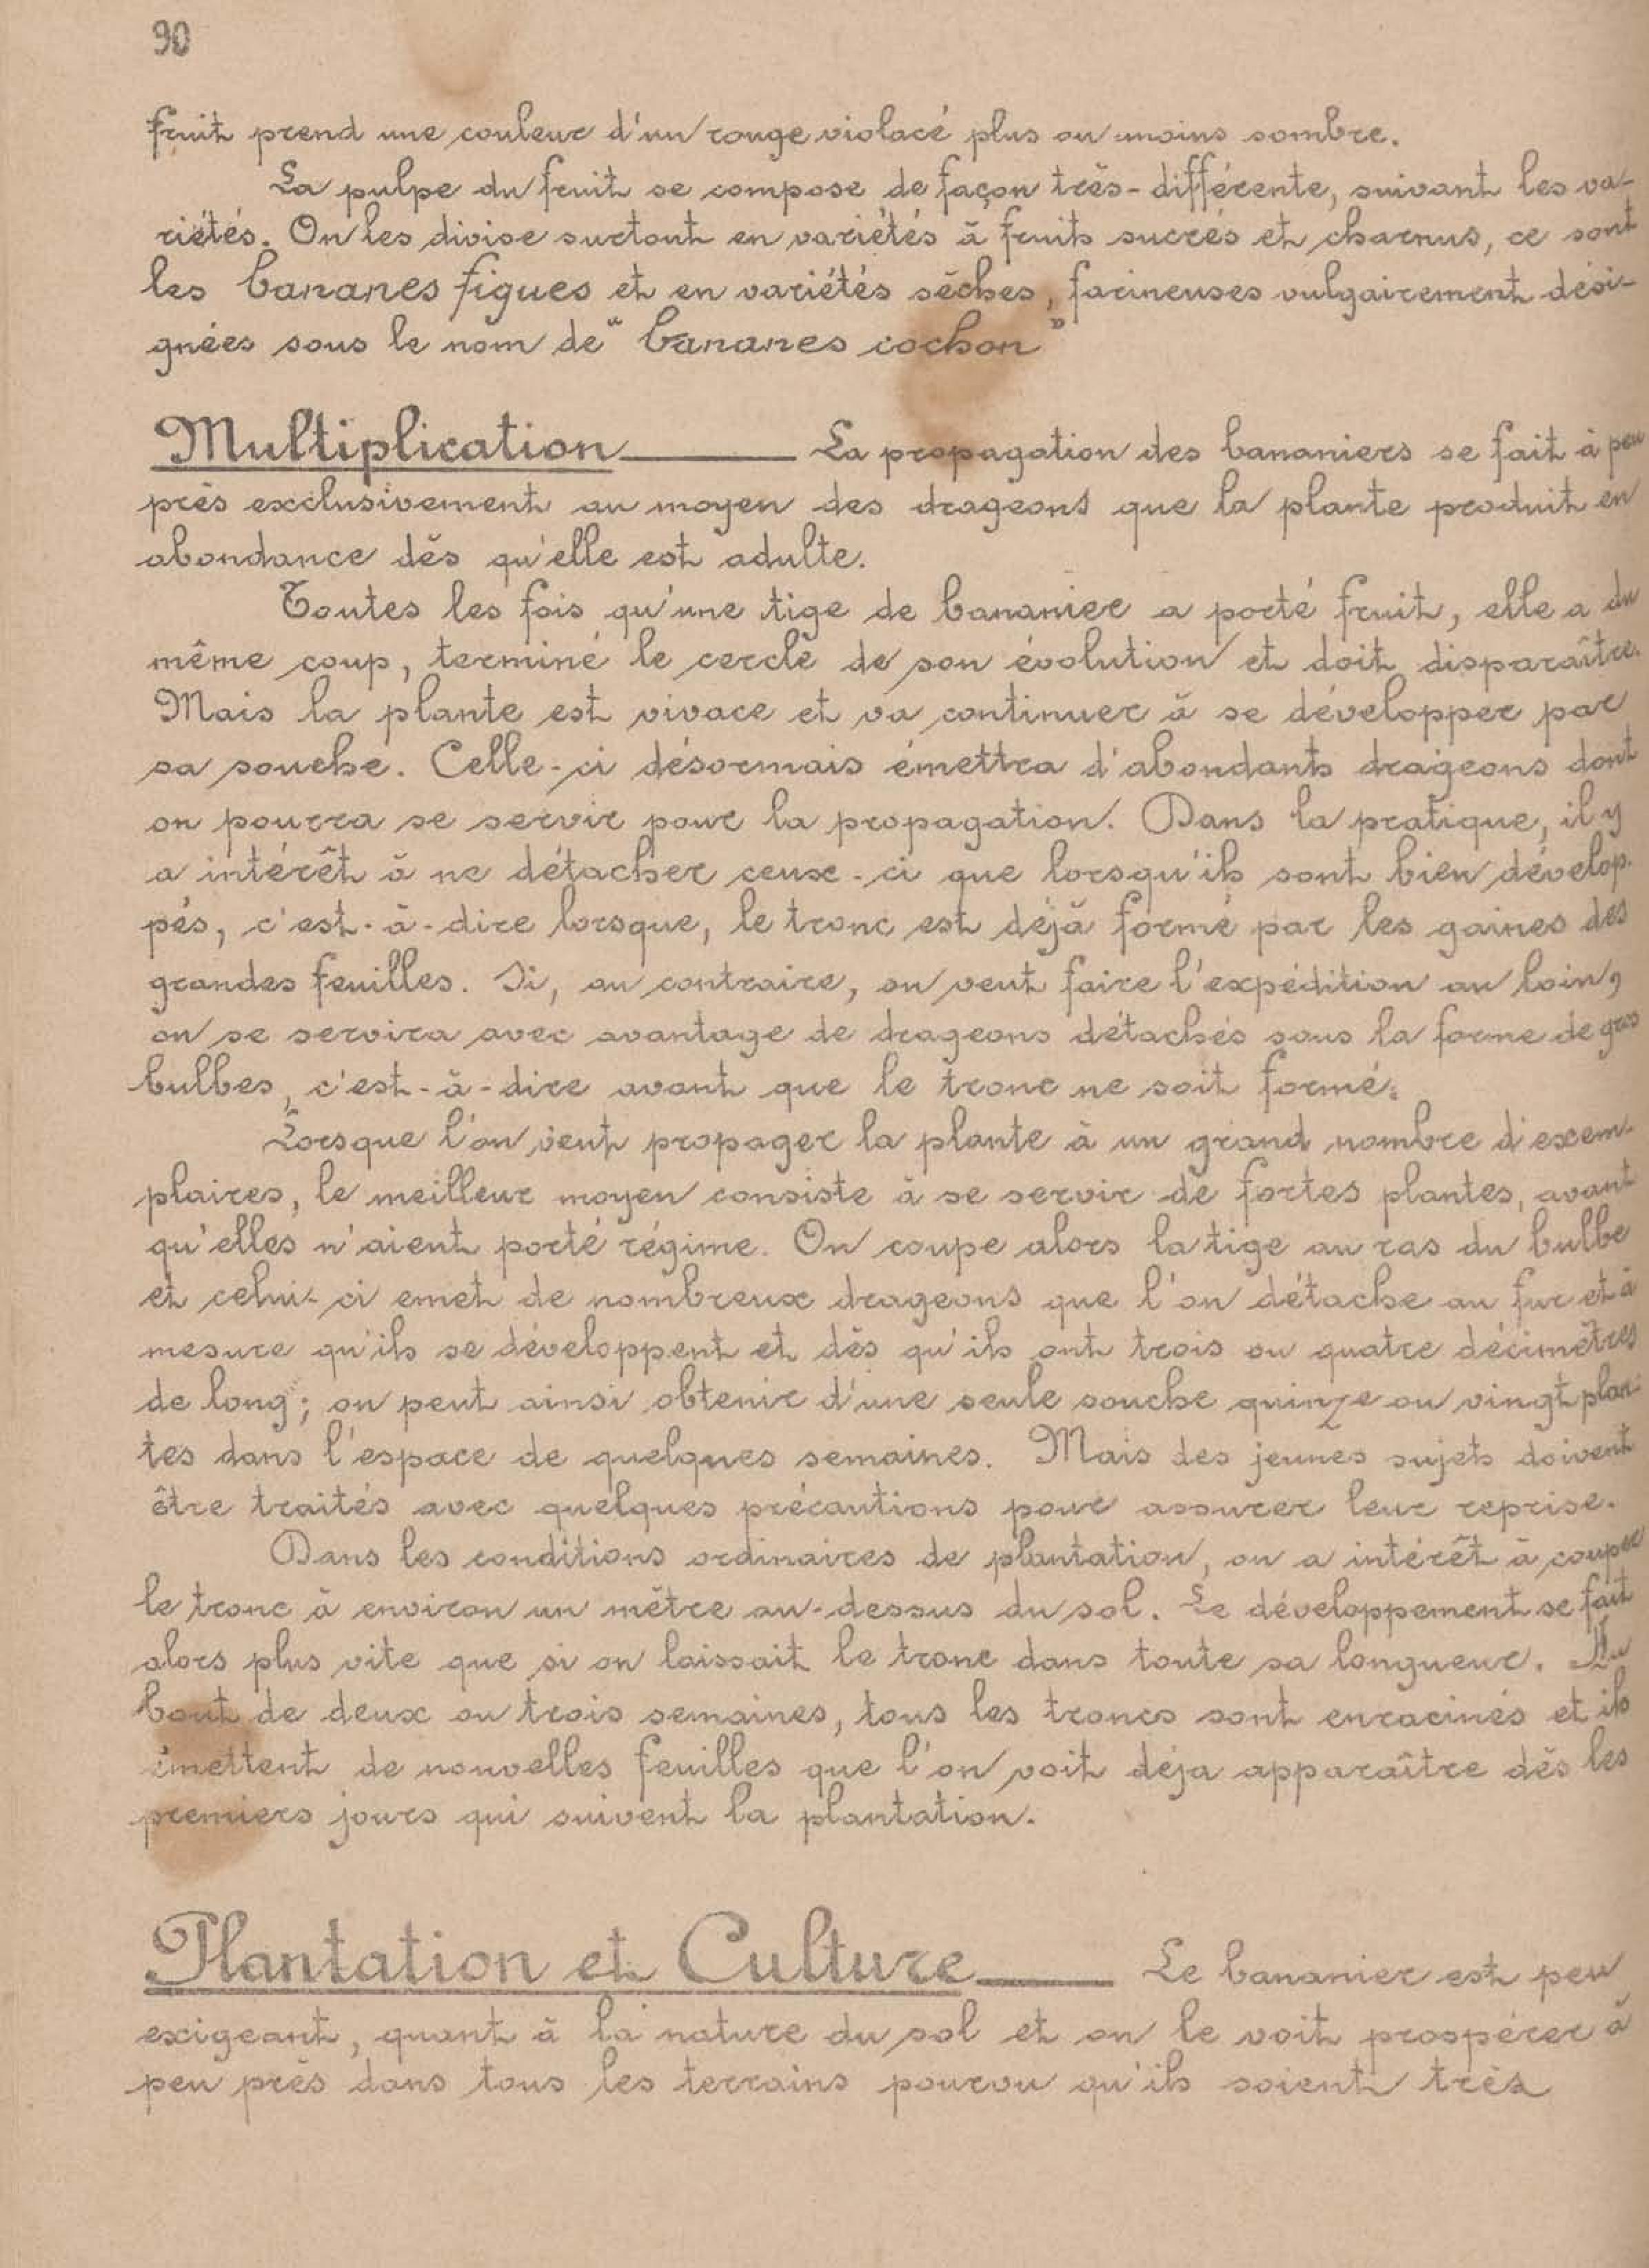 90
fruit prend une couleur d'un rouge violacé plus ou moins sombre.
La pulpe du fruit se compose de façon très-différente, suivant les va-
riétés. On les divise surtout en variétés à fruits sucrés et charnus, ce sont
les bananes figues et en variétés sèches, farineuses vulgairement dési-
gnées sous le nom de "bananes cochon"
Multiplication — La propagation des bananiers se fait à peu
près exclusivement au moyen des drageons que la plante produit en
abondance dès qu'elle est adulte.
Toutes les fois qu'une tige de bananier a porté fruit, elle a du
même coup, terminé le cercle de son évolution et doit disparaître.
Mais la plante est vivace et va continuer à se développer par
sa souche. Celle-ci désormais émettra d'abondants drageons dont
on pourra se servir pour la propagation. Dans la pratique, il y
a intérêt à ne détacher ceux-ci que lorsqu'ils sont bien dévelop-
pés, c'est-à-dire lorsque, le tronc est déjà formé par les gaines des
grandes feuilles. Si, au contraire, on veut faire l'expédition au loin,
on se servira avec avantage de drageons détachés sous la forme de gros
bulbes, c'est-à-dire avant que le tronc ne soit formé.
Lorsque l'on veut propager la plante à un grand nombre d'exem-
plaires, le meilleur moyen consiste à se servir de fortes plantes, avant
qu'elles n'aient porté régime. On coupe alors la tige au ras du bulbe
et celui-ci emet de nombreux drageons que l'on détache au fur et à
mesure qu'ils se développent et dès qu'ils ont trois ou quatre décimètres
de long; on peut ainsi obtenir d'une seule souche quinze ou vingt plan-
tes dans l'espace de quelques semaines. Mais des jeunes sujets doivent
être traités avec quelques précautions pour assurer leur reprise.
Dans les conditions ordinaires de plantation, on a intérêt à couper
le tronc à environ un mètre au-dessus du sol. Le développement se fait
alors plus vite que si on laissait le tronc dans toute sa longueur. Au
bout de deux ou trois semaines, tous les troncs sont enracinés et ils
émettent de nouvelles feuilles que l'on voit déja apparaître dès les
premiers jours qui suivent la plantation.
Plantation et Culture — Le bananier est peu
exigeant, quant à la nature du sol et on le voit prospérer à
peu près dans tous les terrains pourvu qu'ils soient très